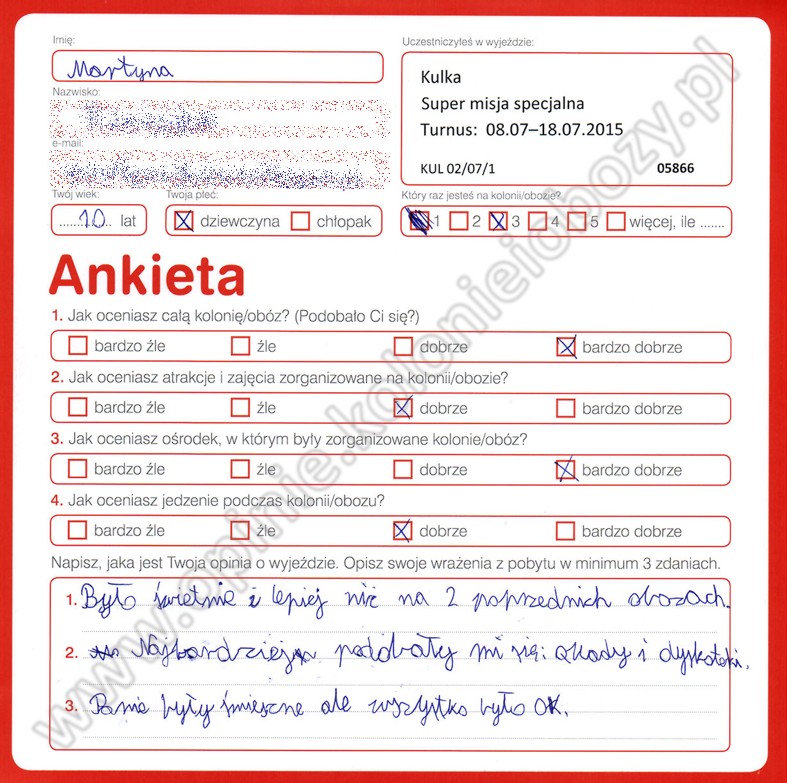 Imię:
Uczestniczyłeś w wyjeździe:
Martyna
Kulka
Super misja specjalna
Turnus: 08.07–18.07.2015
KUL 02/07/1 05866
Nazwisko:
e-mail:
Twój wiek: Twoja płeć: Który raz jesteś na kolonii/obozie?
10 lat dziewczyna chłopak 1 2 3 4 5 więcej, ile .......
Ankieta
1. Jak oceniasz całą kolonię/obóz? (Podobało Ci się?)
bardzo źle źle dobrze bardzo dobrze
2. Jak oceniasz atrakcje i zajęcia zorganizowane na kolonii/obozie?
bardzo źle źle dobrze bardzo dobrze
3. Jak oceniasz ośrodek, w którym były zorganizowane kolonie/obóz?
bardzo źle źle dobrze bardzo dobrze
4. Jak oceniasz jedzenie podczas kolonii/obozu?
bardzo źle źle dobrze bardzo dobrze
Napisz, jaka jest Twoja opinia o wyjeździe. Opisz swoje wrażenia z pobytu w minimum 3 zdaniach.
1. Było świetnie i lepiej niż na 2 poprzednich obozach.
2. Najbardziej podobały mi się: i dyskoteki.
3. Panie były śmieszne ale wszystko było OK.
www.opinie.kolonieiobozy.pl